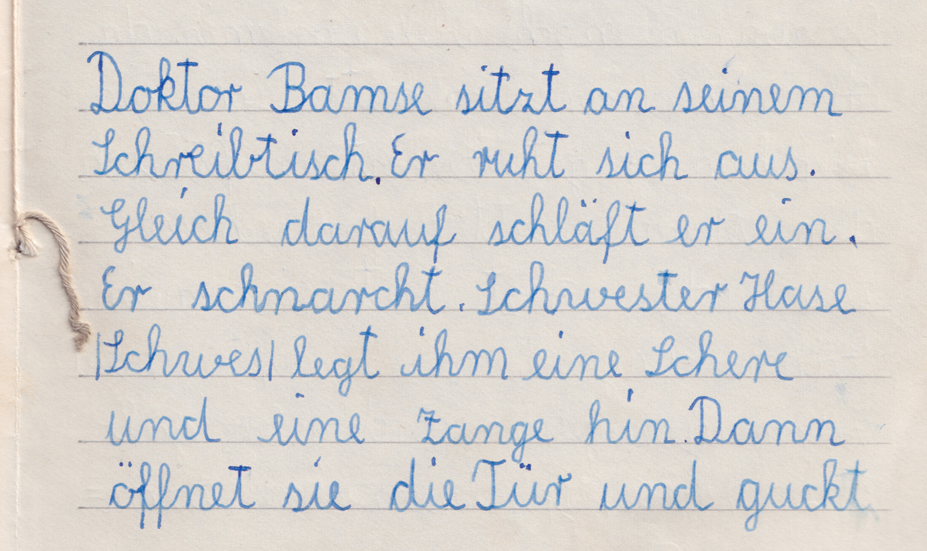 Doktor Bamse sitzt an seinem
Schreibtisch. Er ruht sich aus.
Gleich darauf schläft er ein.
Er schnarcht. Schwester Hase
|Schwes| legt ihm eine Schere
und eine Zange hin. Dann
öffnet sie die Tür und guckt